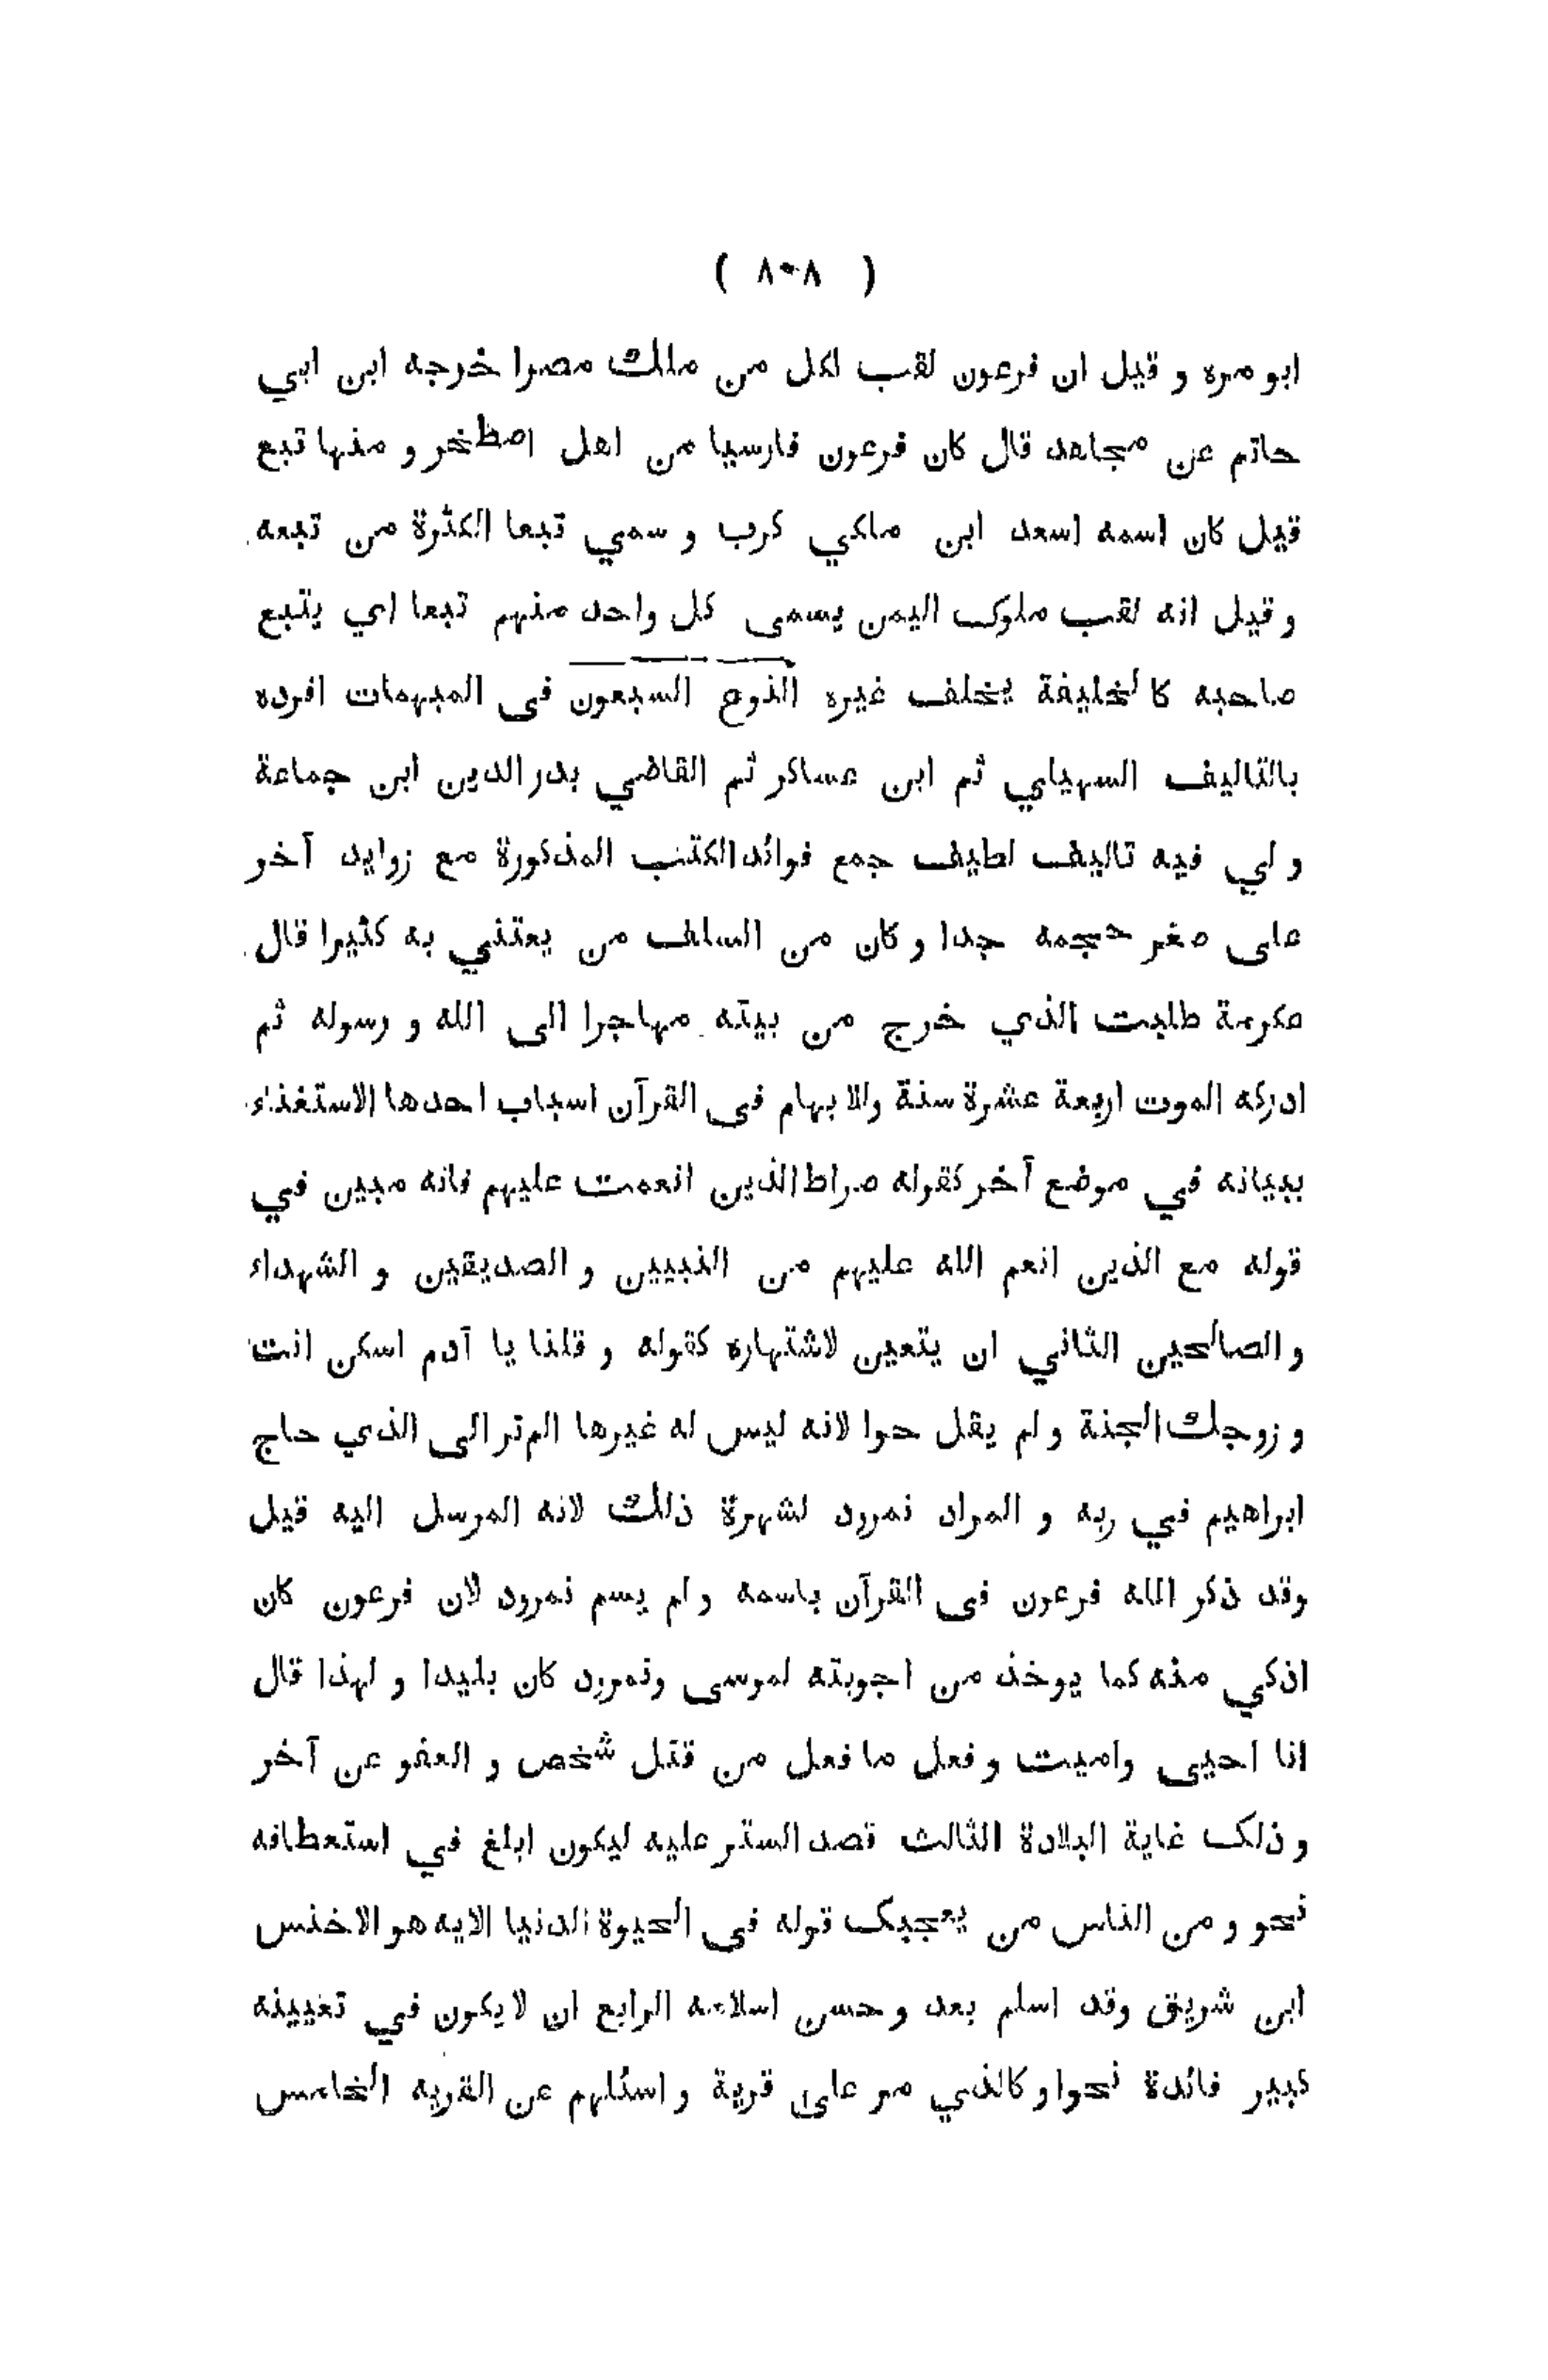 ( ٨٠٨ )
ابو مره و قيل ان فرعون لقب لكل من ملك مصرا خرجه ابن ابي
حاتم عن مجاهد قال كان فرعون فارسيا من اهل اصطخر و منها تبع
قيل كان اسمه اسعد ابن ملكي كرب و سمي تبعا الكثرة من تبعه
و قيل انه لقب ملوك اليمن يسمى كل واحد منهم تبعا اي يتبع
صاحبه كالخليفة يخلف غيره النوع السبعون فى المبهمات افرده
بالتاليف السهيلي ثم ابن عساكر ثم القاضي بدر الدين ابن جماعة
و لي فيه تاليف لطيف جمع فوائد الكتب المذكورة مع زوايد آخر
على صغر حجمه جدا و كان من السلف من يعتني به كثيرا قال
عكرمة طلبت الذي خرج من بيته مهاجرا الى الله و رسوله ثم
ادركه الموت اربعة عشرة سنة والابهام فى القرآن اسباب احدها الاستغناء
ببيانه في موضع آخر كقوله صراط الذين انعمت عليهم فانه مبين في
قوله مع الذين انعم الله عليهم من النبيين و الصديقين و الشهداء
و الصالحين الثاني ان يتعين لاشتهاره كقوله و قلنا يا آدم اسكن انت
و زوجك الجنة و لم يقل حوا لانه ليس له غيرها الم تر الى الذي حاج
ابراهيم في ربه و المراد نمرود لشهرة ذلك لانه المرسل اليه قيل
وقد ذكر الله فرعون فى القرآن باسمه و لم يسم نمرود لان فرعون كان
اذكي منه كما يوخذ من اجوبته لموسى ونمرود كان بليدا و لهذا قال
انا احيى واميت و فعل ما فعل من قتل شخص و العفو عن آخر
و ذلك غاية البلادة الثالث قصد الستر عليه ليكون ابلغ في استعطافه
نحو و من الناس من يعجبك قوله فى الحيوة الدنيا الايه هو الاخنس
ابن شريق وقد اسلم بعد و حسن اسلامه الرابع ان لا يكون في تعيينه
كبير فائدة نحوا و كالذي مر على قرية و اسئلهم عن القريه الخامس